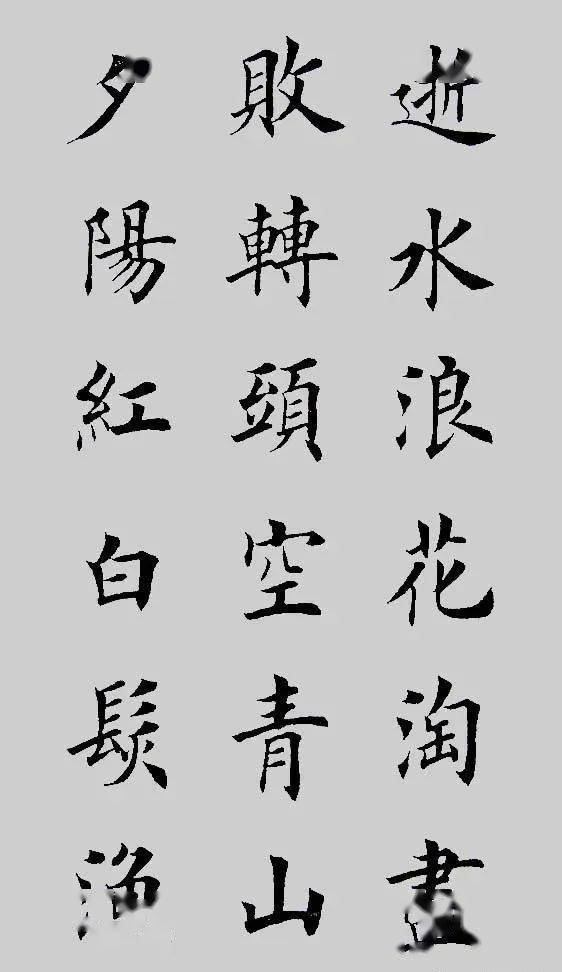 逝水浪花淘盡
敗轉頭空青山
夕陽紅白髮漁